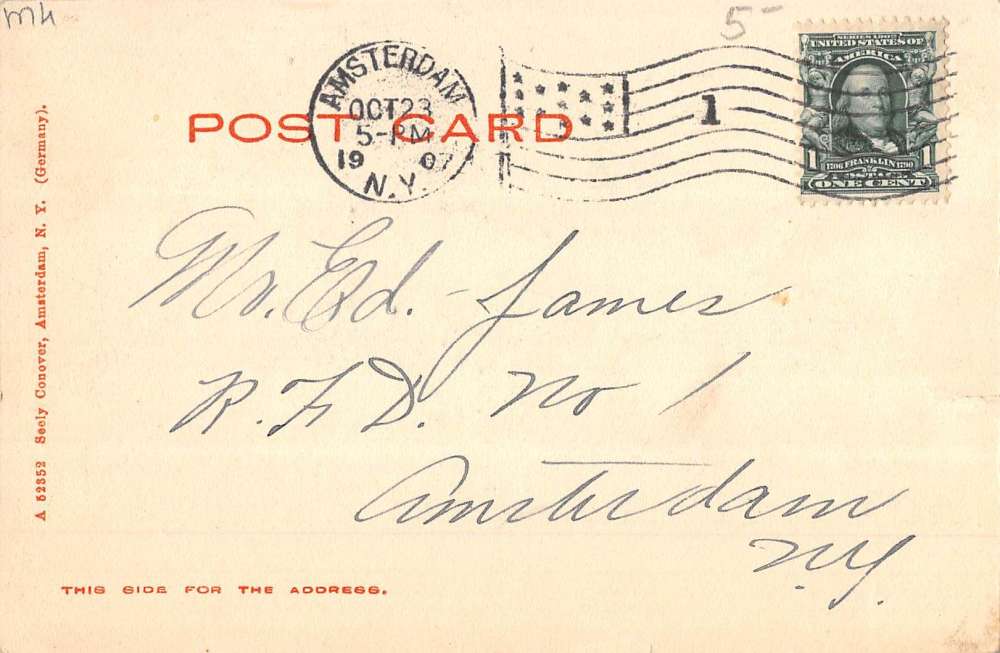 mh
5-
AMSTERDAM
OCT 23
5-PM
19 07
N.Y.
1
SERIES 1902
UNITED STATES OF
AMERICA
1706 FRANKLIN 1790
POSTAGE
1 ONE CENT 1
POST CARD
A 52352 Seely Conover, Amsterdam, N. Y. (Germany).
Mr. Ed. James
R. F. D. No 1
Amsterdam
N.Y.
THIS SIDE FOR THE ADDRESS.